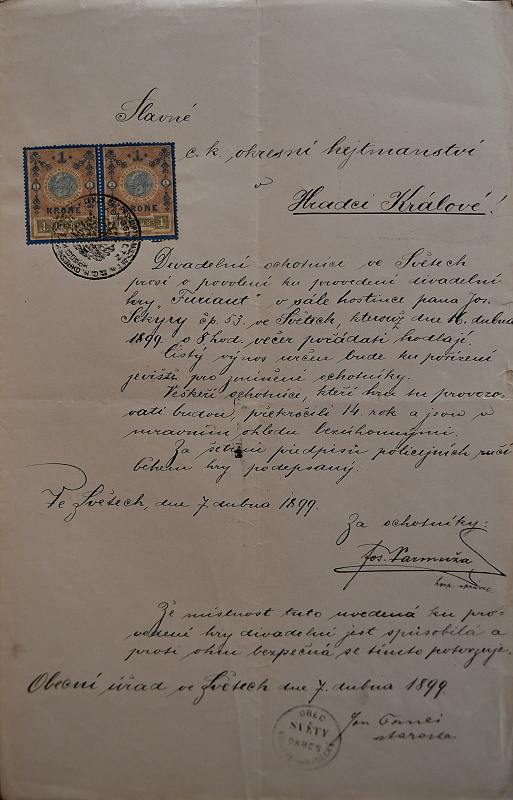 Slavné
c. k. okresní hejtmanství
v
Hradci Králové!
1 1
KRONE KRONE
Divadelní ochotnice ve Světech
prosí o povolení ku provedení divadelní
hry „Furiant" v sále hostince pana Jos.
Sekyry čp. 53. ve Světech, kterouž dne 16. dubna
1899. o 8 hod. večer pořádati hodlají.
Čistý výnos určen bude ku pořízení
jeviště pro zmíněné ochotníky.
Veškeří ochotnice, kteří hru tu provozo-
vati budou, překročili 14. rok a jsou v
mravním ohledu bezúhonnými.
Za šetření předpisův policejních ručí
během hry podepsaný.
Ve Světech, dne 7. dubna 1899.
Za ochotníky:
Jos. Varmuža
hosp. správce
Že místnost tuto uvedená ku pro-
vedení hry divadelní jest spůsobilá a
proti ohni bezpečná se tímto potvrzuje.
Obecní úřad ve Světech dne 7. dubna 1899.
OBEC
SVĚTY
OKRES
Jan
starosta